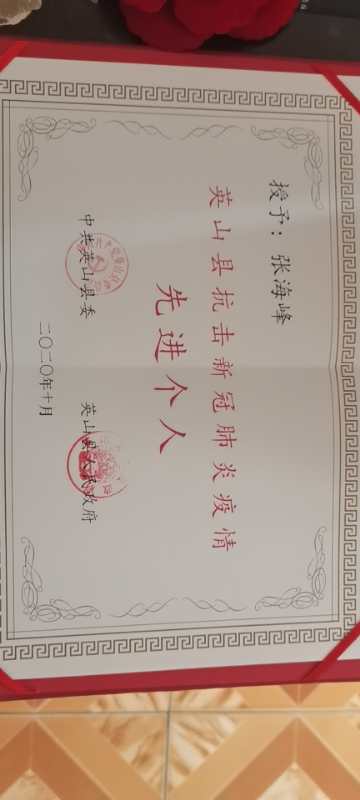 授予：张海峰
英山县抗击新冠肺炎疫情
先进个人
中共英山县委 英山县人民政府
二〇二〇年十月